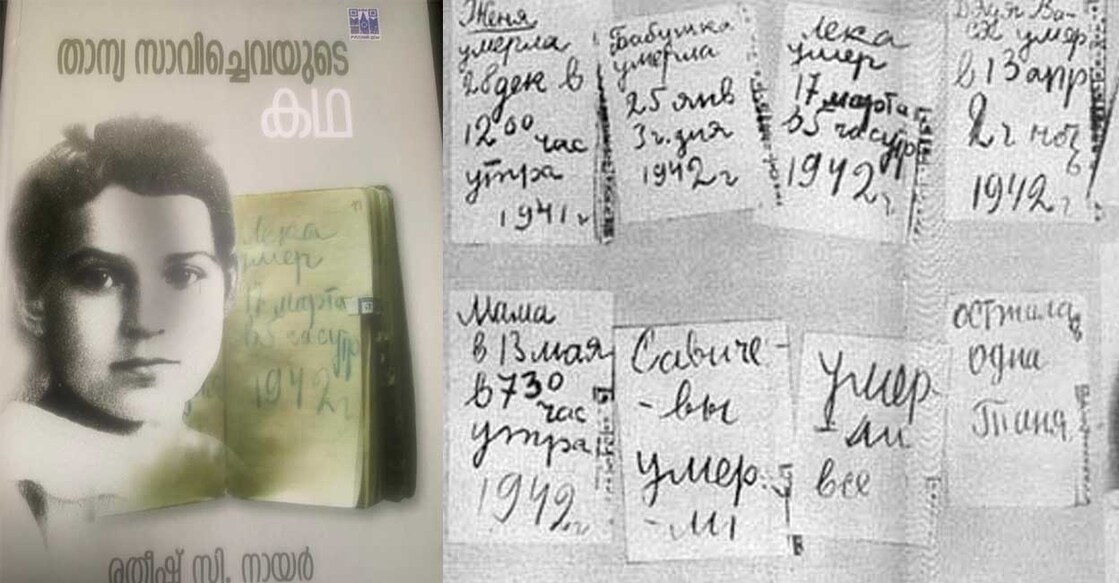 താന്യ സാവിച്ചെവയുടെ
കഥ
Лека
умер
17 марта
в 5 часутр
1942 г
രതീഷ് സി. നായർ
Женя
умерла
28 дек в
12 00 час
утра
1941 г
Бабушка
умерла
25 янв
3 ч. дня
1942 г
Лека
умер
17 марта
в 5 часутр
1942 г
Дядя Ва-
ся умер
в 13 апр
2 ч ноч
1942 г
Мама
в 13 мая
в 7 30
час
утра
1942 г
Савиче-
-вы
умер
-ли
умер
-ли
все
осталась
одна
Таня